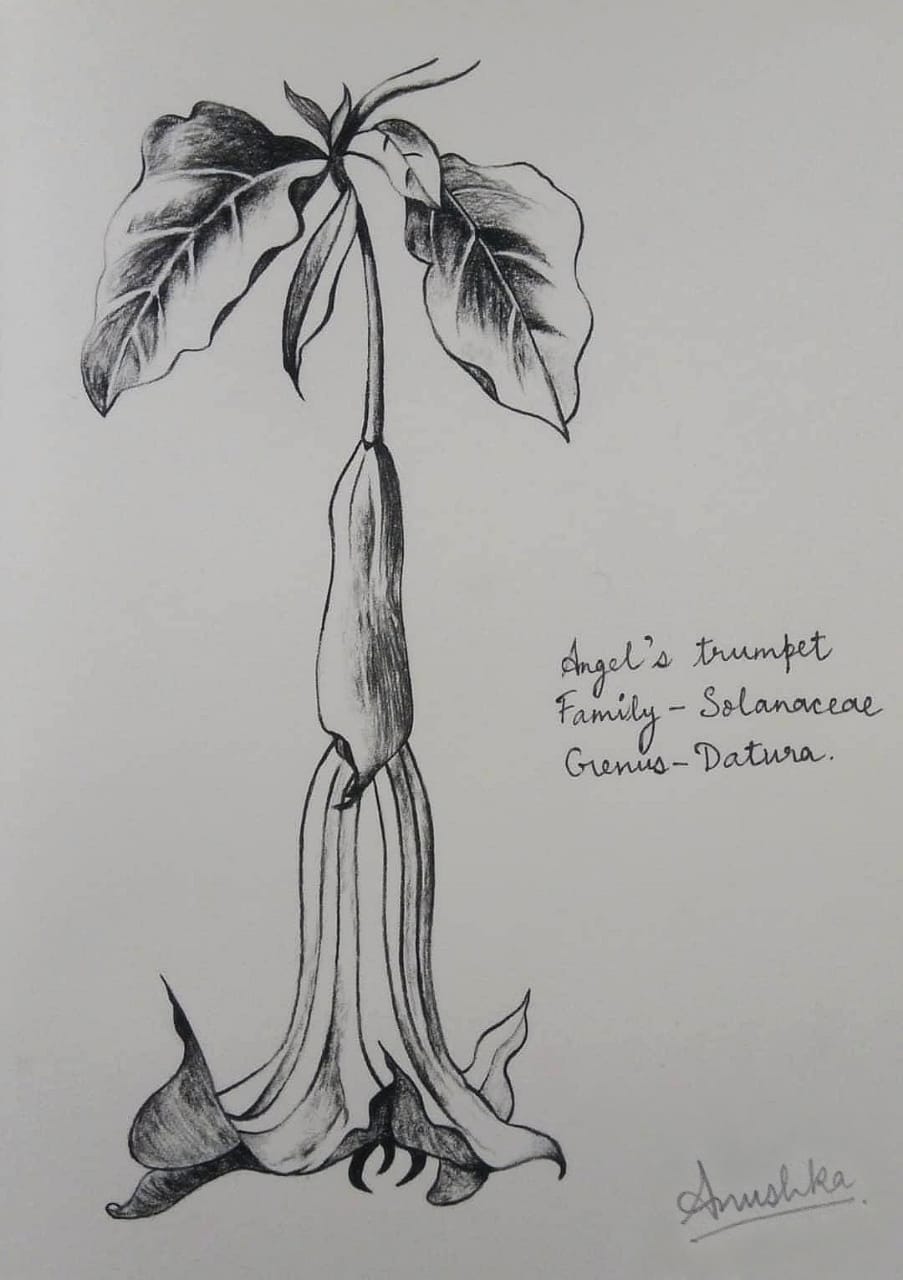 Angel's trumpet
Family - Solanaceae
Genus - Datura.
Anushka.